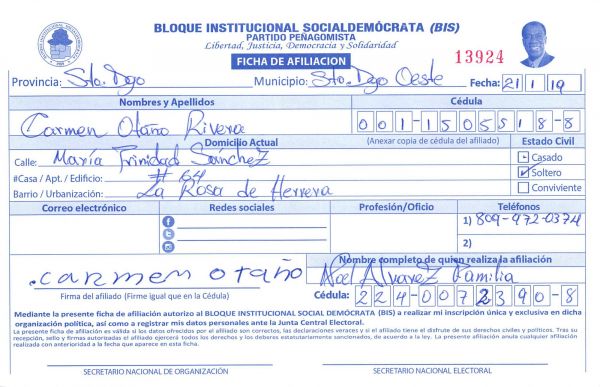 BLOQUE INSTITUCIONAL SOCIALDEMÓCRATA (BIS)
PARTIDO PEÑAGOMISTA
Libertad, Justicia, Democracia y Solidaridad
FICHA DE AFILIACION
13924
Provincia: Sto. Dgo Municipio: Sto. Dgo Oeste Fecha: 21 1 19
Nombres y Apellidos Cédula
Carmen Otaño Rivera 001-1505518-8
Domicilio Actual (Anexar copia de cédula del afiliado) Estado Civil
Calle: María Trinidad Sánchez Casado
#Casa / Apt. / Edificio: # 64 Soltero
Barrio / Urbanización: La Rosa de Herrera Conviviente
Correo electrónico Redes sociales Profesión/Oficio Teléfonos
1) 809-972-0374
2)
Nombre completo de quien realiza la afiliación
.carmen otaño Noel Alvarez Familia
Firma del afiliado (Firme igual que en la Cédula) Cédula: 224-0072390-8
Mediante la presente ficha de afiliación autorizo al BLOQUE INSTITUCIONAL SOCIAL DEMÓCRATA (BIS) a realizar mi inscripción única y exclusiva en dicha
organización política, así como a registrar mis datos personales ante la Junta Central Electoral.
La presente ficha de afiliación es válida si los datos ofrecidos por el afiliado son correctos, las declaraciones veraces y si el afiliado tiene el disfrute de sus derechos civiles y políticos. Tras su
recepción, sello y firmas autorizadas el afiliado ejercerá todos los derechos y los deberes estatutariamente sancionados, de acuerdo a la ley. La presente afiliación anula cualquier afiliación
realizada con anterioridad a la fecha que aparece en esta ficha.
SECRETARIO NACIONAL DE ORGANIZACIÓN SECRETARIO NACIONAL ELECTORAL